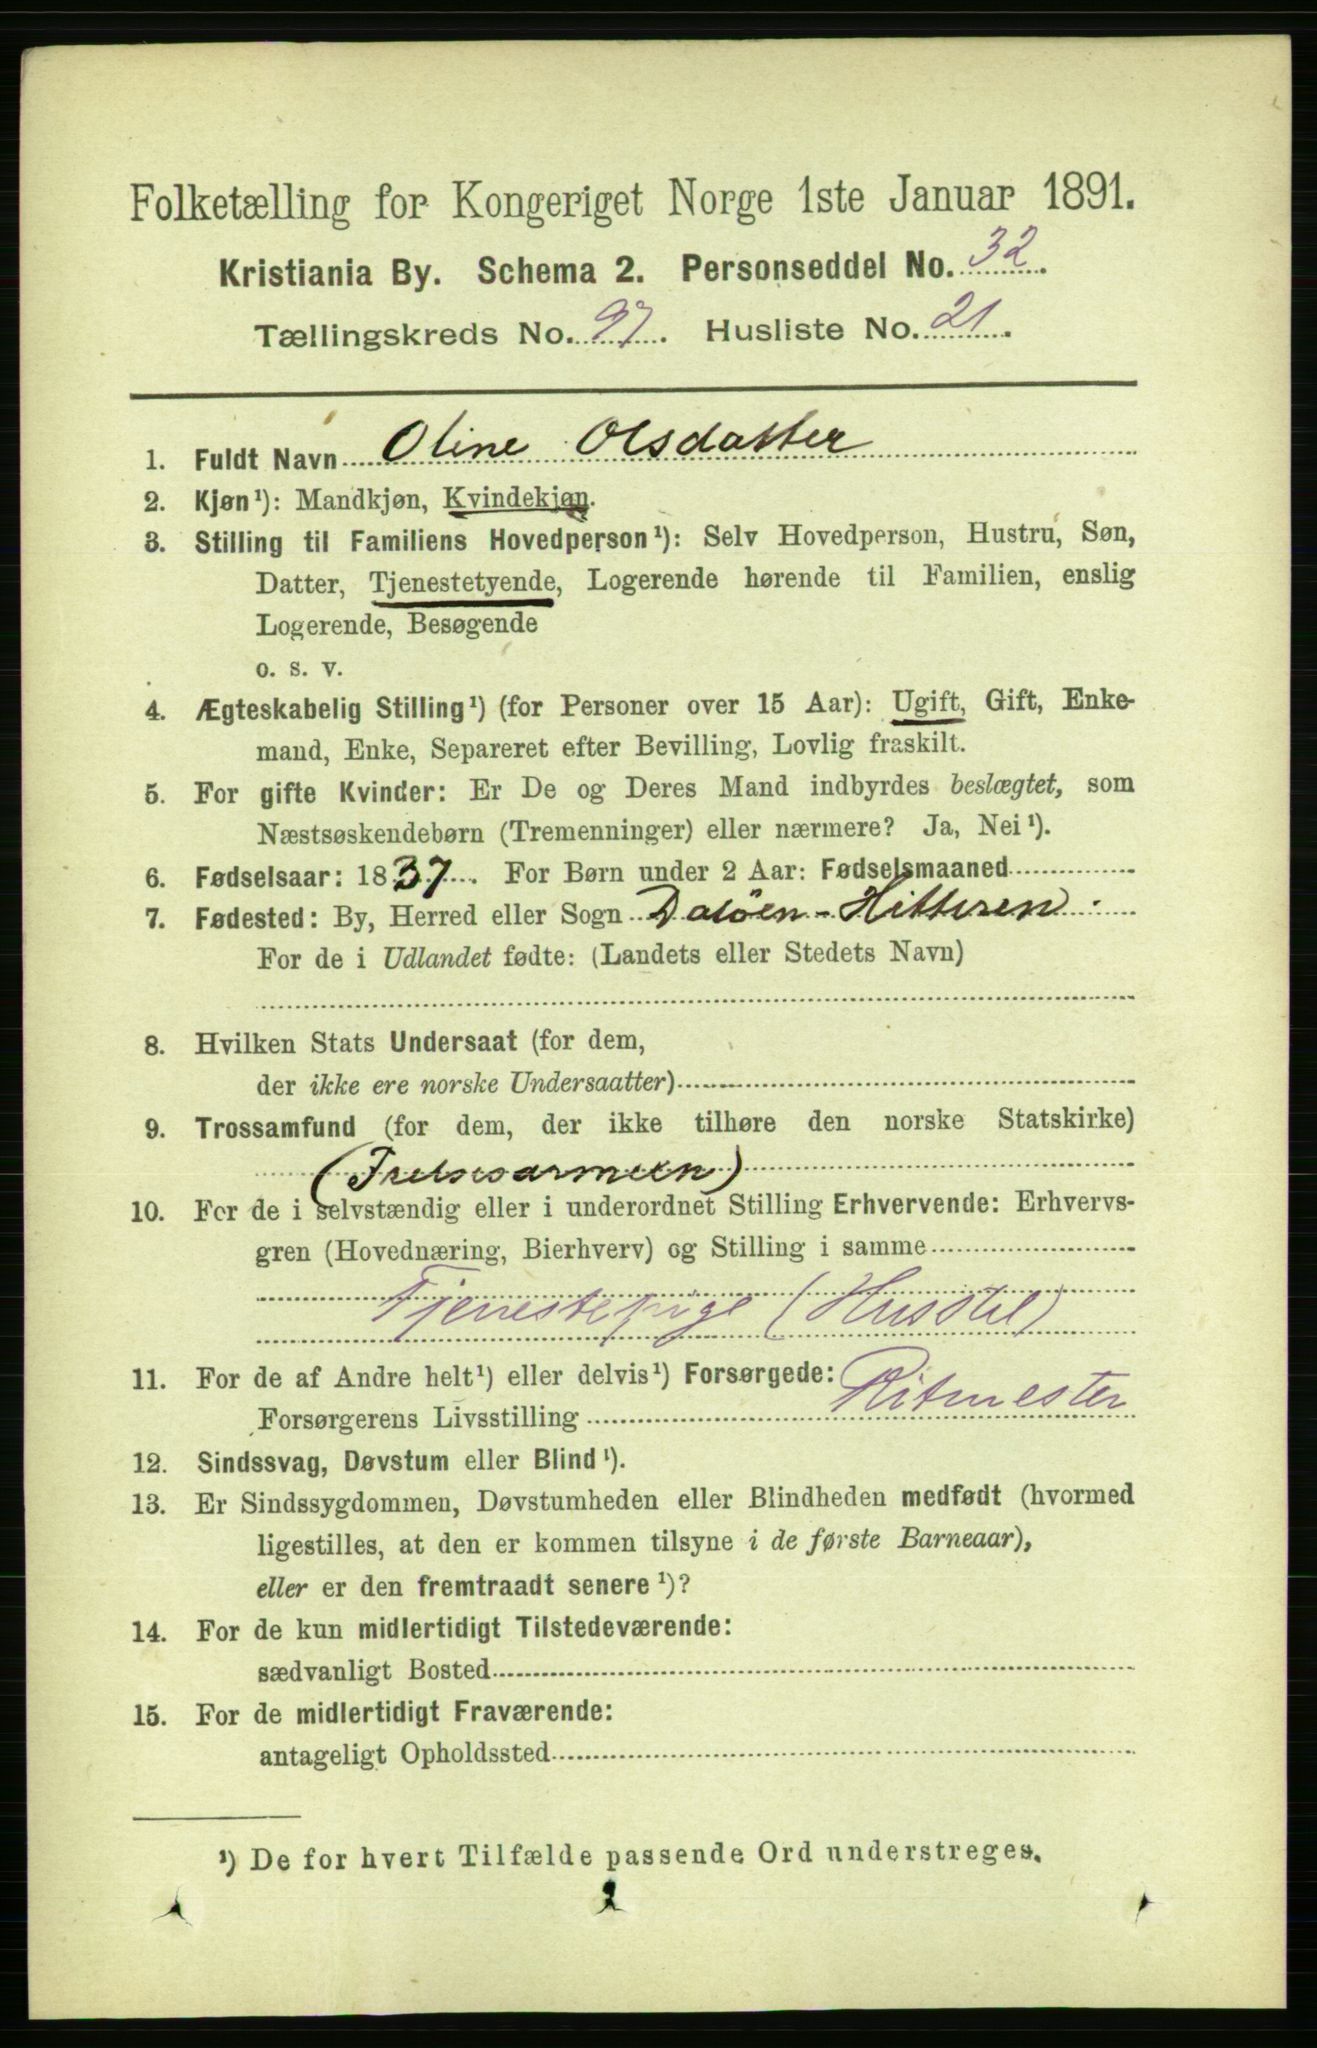 Folketælling for Kongeriget Norge 1ste Januar 1891.
Kristiania By. Schema 2. Personseddel No. 32.
Tællingskreds No. 97. Husliste No. 21.
1. Fuldt Navn Oline Olsdatter
2. Kjøn¹): Mandkjøn, Kvindekjøn.
3. Stilling til Familiens Hovedperson¹): Selv Hovedperson, Hustru, Søn,
Datter, Tjenestetyende, Logerende hørende til Familien, enslig
Logerende, Besøgende
o. s. v.
4. Ægteskabelig Stilling¹) (for Personer over 15 Aar): Ugift, Gift, Enke-
mand, Enke, Separeret efter Bevilling, Lovlig fraskilt.
5. For gifte Kvinder: Er De og Deres Mand indbyrdes beslægtet, som
Næstsøskendebørn (Tremenninger) eller nærmere? Ja, Nei¹).
6. Fødselsaar: 1837. For Børn under 2 Aar: Fødselsmaaned
7. Fødested: By, Herred eller Sogn Daløen - Hitteren
For de i Udlandet fødte: (Landets eller Stedets Navn)
8. Hvilken Stats Undersaat (for dem,
der ikke ere norske Undersaatter)
9. Trossamfund (for dem, der ikke tilhøre den norske Statskirke)
(Frelsesarmeen)
10. For de i selvstændig eller i underordnet Stilling Erhvervende: Erhvervs-
gren (Hovednæring, Bierhverv) og Stilling i samme
Tjenestepige (Husstel)
11. For de af Andre helt¹) eller delvis¹) Forsørgede:
Forsørgerens Livsstilling Ritmester
12. Sindssvag, Døvstum eller Blind¹).
13. Er Sindssygdommen, Døvstumheden eller Blindheden medfødt (hvormed
ligestilles, at den er kommen tilsyne i de første Barneaar),
eller er den fremtraadt senere¹)?
14. For de kun midlertidigt Tilstedeværende:
sædvanligt Bosted
15. For de midlertidigt Fraværende:
antageligt Opholdssted
¹) De for hvert Tilfælde passende Ord understreges.